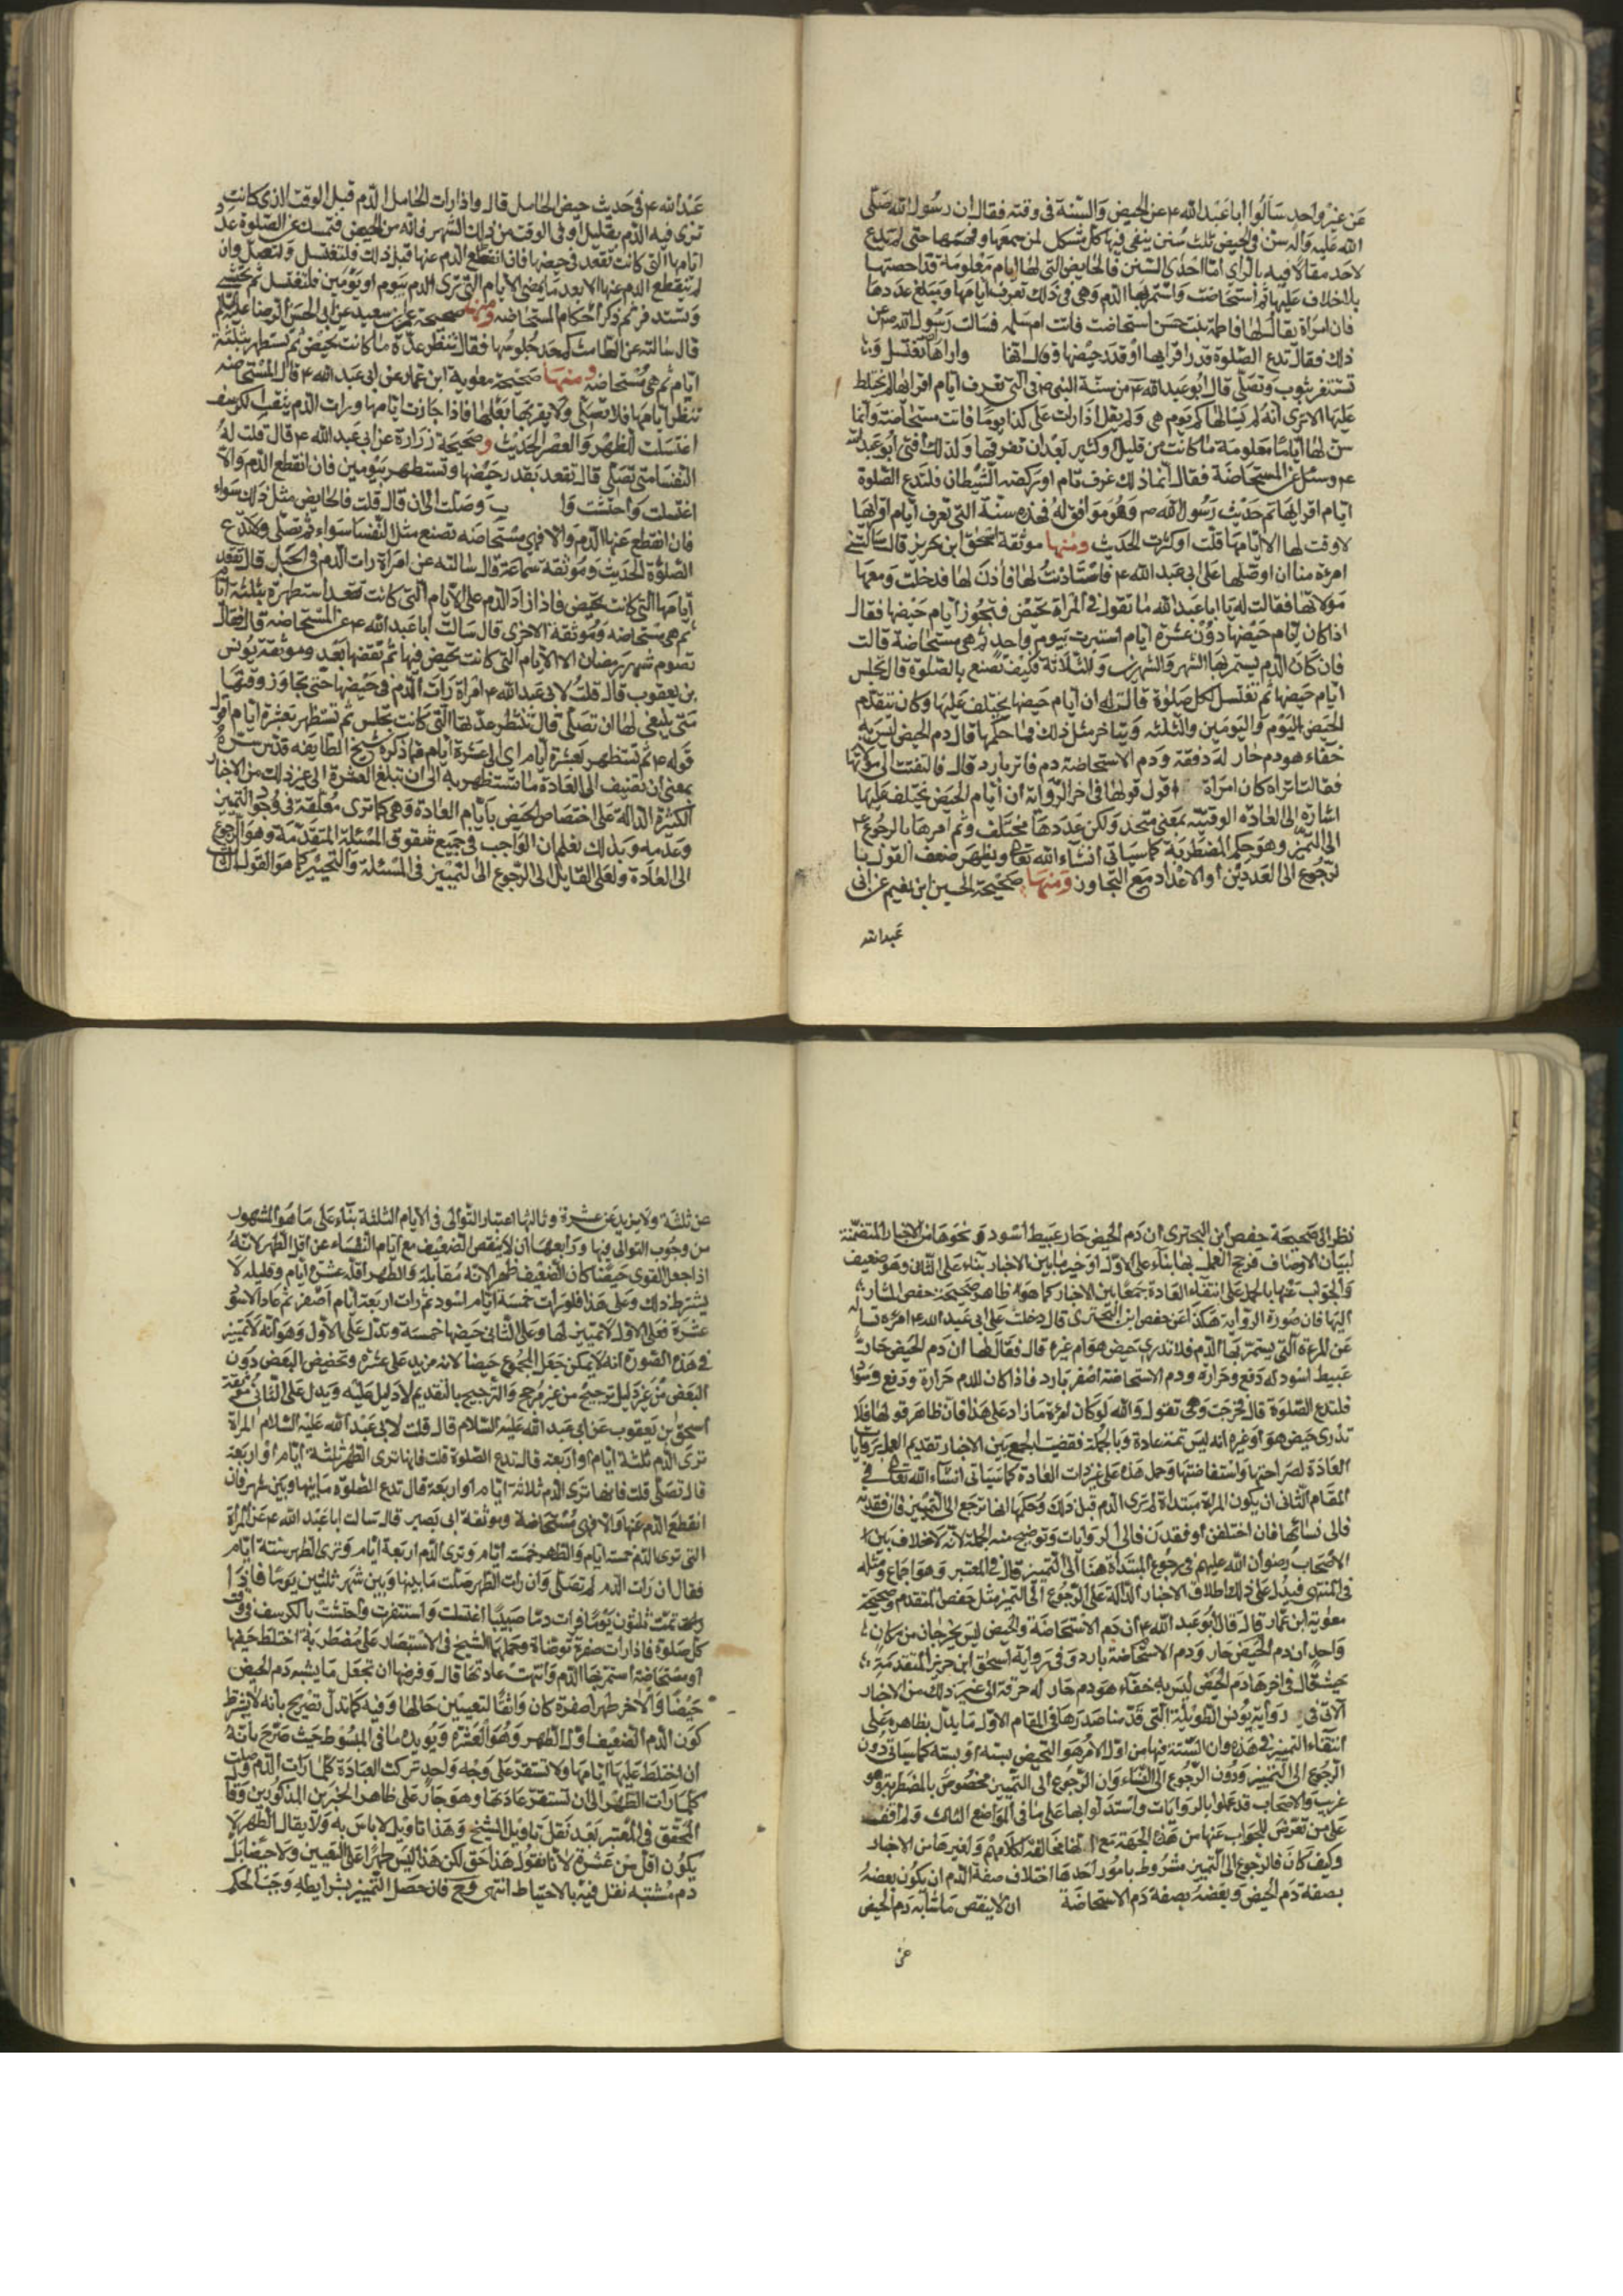 عن غير واحد سالوا ابا عبد الله ۴ عن الحيض والسنة فى وقته فقال ان رسول الله صلى
الله عليه واله سن فى الحيض ثلث سنن ينفى فيها كل مشكل لمن سمعها وفهمها حتى لم يدع
لاحد مقالا فيه بالراى اما احدى السنن فالحايض التى لها ايام معلومة قد احصتها
بلا اختلاف عليها ثم استحاضت واستمر بها الدم وهى فى ذلك تعرف ايامها ومبلغ عددها
فان امراة يقال لها فاطمة بنت حسن استحاضت فاتت ام سلمه فسالت رسول الله ص عن
ذلك فقال تدع الصلوة قدر اقرايها او قدر حيضها وقال انما وامرها تغتسل و
تستثفر بثوب وتصلى قال ابو عبد الله ۴ من سنة النبى ص فى التى تعرف ايام اقرائها لم تختلط
عليها الا ترى انه لم يسالها كم يوم هى ولم يقل اذا زادت على كذا يوما فانت مستحاضة وانما
سن لها اياما معلومة ما كانت من قليل او كثير بعد ان تعرفها ولذلك افتى ابو عبد الله
۴ وسئل عن المستحاضة فقال انما ذلك عرف قام او ركضه الشيطان فلتدع الصلوة
ايام اقرايها ثم حديث رسول الله ص وهو موافق له فهذه سنة التى تعرف ايام اقرايها
لا وقت لها الا ايامها قلت او كثرت الحديث ومنها موثقة اسحق ابن جرير قال سالتنى
امرءة منا ان اوصلها على ابى عبد الله ۴ فاستاذنت لها فاذن لها فدخلت ومعها
مولاتها فقالت له يا ابا عبد الله ما تقول فى المراة تحيض فتجوز ايام حيضها فقال
اذا كان ايام حيضها دون عشرة ايام استبرت بيوم واحد ثم هى مستحاضة قالت
فان كان الدم يستمر بها الشهر والشهرين والثلاثة وكيف تصنع بالصلوة قال تجلس
ايام حيضها ثم تغتسل لكل صلوة قالت له ان ايام حيضها يختلف عليها وكان يتقدم
الحيض اليوم واليومين والثلثه ويتاخر مثل ذلك فما حكمها قال دم الحيض ليس به
خفاء هو دم حار له دفقة ودم الاستحاضة دم فاتر بارد قال فالتفتت الى مولاتها
فقالت اتراه كان امراة اقول قولها فى اخر الرواية ان ايام الحيض تختلف عليها
اشارة الى العادة الوقتية بمعنى متحد ولكن عددها مختلف وثم امرها بالرجوع ح
الى التميز وهو حكم المضطربة كما سياتى انشاء الله تعالى ويظهر ضعف القول با
لرجوع الى العددين او الاعداد مع التجاوز ومنها صحيحة الحسين ابن نعيم عن ابى
عبد الله
عبد الله ۴ فى حديث حيض الحامل قال واذا رات الحامل الدم قبل الوقت الذى كانت
ترى فيه الدم بقليل او فى الوقت من ذلك الشهر فانه من الحيض فتمسك عن الصلوة عدد
ايامها التى كانت تقعد فى حيضها فان انقطع الدم عنها قبل ذلك فلتغتسل ولتصل وان
لم ينقطع الدم عنها الا بعد ما يمضى الايام التى ترى الدم بيوم او يومين فلتغتسل ثم تحتشى
وتستدفر ثم ذكر احكام المستحاضه ومنها صحيحة بن سعيد عن ابى الحسن الرضا عليه السلم
قال سالته عن الطامث كم حد جلوسها فقال تنظر عدة ما كانت تحيض ثم تستظهر بثلثة
ايام ثم هى مستحاضة ومنها صحيحة معوية ابن عمار عن ابى عبد الله ۴ قال المستحاضه
تنظر ايامها فلا تصلى ولا يقربها بعلها فاذا جازت ايامها ورات الدم يثقب الكرسف
اغتسلت للظهر والعصر الحديث وصحيحة زرارة عن ابى عبد الله ۴ قال قلت له
النفسا متى تصلى قال تقعد بقدر حيضها وتستظهر بيومين فان انقطع الدم والا
اغتسلت واحتشت وا ب وصلت الى ان قال قلت فالحايض مثل ذلك سواء
فان انقطع عنها الدم والا فهى مستحاضه تصنع مثل النفسا سواء ثم تصلى ولا تدع
الصلوة الحديث وموثقة سماعة قال سالته عن امراة رات الدم فى الحبل قال تقعد
ايامها التى كانت تحيض فاذا زاد الدم على الايام التى كانت تقعد استظهرت بثلثة ايام
ثم هى مستحاضه وموثقة الاخرى قال سالت ابا عبد الله ۴ عن المستحاضه قال فقال
تصوم شهر رمضان الا الايام التى كانت تحيض فيها ثم تقضيها بعد وموثقة يونس
بن يعقوب قال قلت لابى عبد الله ۴ امراة رات الدم فى حيضها حتى تجاوز وقتها
متى ينبغى لها ان تصلى قال تنتظر عدتها التى كانت تجلس ثم تستظهر بعشرة ايام اقول
قوله ۴ ثم تستظهر بعشرة ايام اى الى عشرة ايام فما ذكره شيخ الطايفه قدس سره
بمعنى ان تضيف الى العادة ما تستظهر به الى ان تبلغ العشرة الى غير ذلك من الاخبار
الكثيرة الدالة على اختصاص الحيض بايام العادة وهى كما ترى مطلقة فى وجود التميز
وعدمه وبذلك تعلم ان الواجب فى جميع شقوق المسئلة المتقدمة وهو الرجوع
الى العادة ولعل القايل الى الرجوع الى التمييز فى المسئلة والتخيير كما هو القول الثالث
نظر الى صحيحة حفص ابن البخترى ان دم الحيض حار عبيط اسود ونحوها من الاخبار المتضمنة
لبيان الاوصاف فرجح العمل بها بناء على الاول او خير ما بين الاخبار بناء على الثانى وهو ضعيف
والجواب عنها بالحمل على انتفاء العادة جمعا بين الاخبار كما هو ظاهر صحيحة حفص المشار
اليها فان صورة الرواية هكذا عن حفص ابن البخترى قال دخلت على ابى عبد الله ۴ امرءة
عن المرءة التى يستمر بها الدم فلا تدرى حيض هو ام غيره قال فقال لها ان دم الحيض حار
عبيط اسود له دفع وحرارة ودم الاستحاضة اصفر بارد فاذا كان للدم حرارة ودفع وسواد
فلتدع الصلوة قال فخرجت وهى تقول والله لو كان امرءة ما زاد على هذا فان ظاهر قولها فلا
تدرى حيض هو او غيره انه ليس ثمة عادة وبالجملة فقضيت الجمع بين الاخبار تقديم العمل بروايات
العادة لصراحتها واستفاضتها وحمل هذه على غير ذات العادة كما سياتى انشاء الله تعالى فى
المقام الثانى ان يكون المراة مبتداة لم ترى الدم قبل ذلك وحكمها انها ترجع الى التميز فان فقدته
فالى نسائها فان اختلفن او فقدن فالى الروايات وتوضيح هذه الجملة لانه لا خلاف بين
الاصحاب رضوان الله عليهم فى رجوع المبتداة هنا الى التميز قال فى المعتبر وهو اجماع ومثله
فى المنتهى فيدل على ذلك اطلاق الاخبار الدالة على الرجوع الى التميز مثل حفص المتقدم وصحيحة
معوية ابن عمار قال قال ابو عبد الله ۴ ان دم الاستحاضة والحيض ليس يخرجان من مكان
واحد ان دم الحيض حار ودم الاستحاضة بارد وفى رواية اسحق ابن جرير المتقدمة
حيث قال فى اخرها دم الحيض ليس به خفاء هو دم حار له حرقة الى غير ذلك من الاخبار
الا ان فى رواية يونس الطويلة التى قدمنا صدرها فى المقام الاول ما يدل بظاهره على
انتفاء التميز فى هذه وان السنة فيها من اول الامر هو التحيض بسته او بسته كما سياتى دون
الرجوع الى التمييز ودون الرجوع الى النساء وان الرجوع الى التمييز مخصوص بالمضطربة وهو
غريب والاصحاب قد عملوا بالروايات واستدلوا بها على ما فى المواضع الثالث ولم اقف
على من تعرض للجواب عنها من هذه الجهة مع انها مخالفة لكلامهم ولغيرها من الاخبار
وكيف كان فالرجوع الى التميز مشروط بامور احدها اختلاف صفة الدم ان يكون بعضه
بصفة دم الحيض وبعضه بصفة دم الاستحاضة ان لا ينقص ما شابه دم الحيض
عن
عن ثلثة ولا يزيد عن عشرة وثالثها اعتبار التوالى فى الايام الثلثة بناء على ما هو المشهور
من وجوب التوالى فيها ورابعها ان لا ينقص الضعيف مع ايام النقاء عن اقل الطهر لانه
اذا جعل القوى حيضا كان الضعيف طهرا لانه مقابله والطهر اقله عشرة ايام وقليله لا
يشترط ذلك وعلى هذا فلو رات خمسة ايام اسود ثم رات اربعة ايام اصفر ثم عاد الاسود
عشرة فعلى الاول لا تمييز لها وعلى الثانى حيضها خمسة ويدل على الاول وهو انه لا تمييز
فى هذه الصورة انه لا يمكن جعل المجموع حيضا لانه مزيد على عشرة وتخصيص البعض دون
البعض من غير دليل ترجيح من غير مرجح والترجيح بالتقديم لا دليل عليه ويدل على الثانى موثقة
اسحق بن يعقوب عن ابى عبد الله عليه السلام قال قلت لابى عبد الله عليه السلام المراة
ترى الدم ثلثة ايام او اربعة قال تدع الصلوة قلت فانها ترى الطهر ثلثة ايام او اربعة
قال تصلى قلت فانها ترى الدم ثلاثة ايام او اربعة قال تدع الصلوة ما بينها وبين شهر فان
انقطع الدم عنها والا فهى مستحاضة وموثقة ابى بصير قال سالت ابا عبد الله ۴ عن المراة
التى ترى الدم خمسة ايام والطهر خمسة ايام وترى الدم اربعة ايام وترى الطهر ستة ايام
فقال ان رات الدم لم تصلى وان رات الطهر صلت ما بينها وبين شهر ثلثين يوما فاذا
تمت ثلثون يوما فرات دما صبيبا اغتسلت واستثفرت واحتشت بالكرسف فى وقت
كل صلوة فاذا رات صفرة توضاة وحملهما الشيخ فى الاستبصار على مضطربة اختلط حيضها
او مستحاضة استمر بها الدم وانتهت عادتها قال وفرضها ان تجعل ما يشبه دم الحيض
حيضا والاخر طهرا صفرة كان وانقاء لتعيين حالها وفيه كما تدل تصريح بانه لا يشترط
كون الدم الضعيف اول الطهر وهو العشرة ويؤيده ما فى المبسوط حيث صرح بانه
ان اختلط عليها ايامها ولا تستقر على وجه واحد تركت العبادة كلما رات الدم وصلت
كلما رات الطهر الى ان تستقر عادتها وهو جار على ظاهر الخبرين المذكورين وقال
المحقق فى المعتبر بعد نقل تاويل الشيخ وهذا تاويل لاباس به ولا يقال الطهر لا
يكون اقل من عشرة لانا نقول هذا حق لكن هذا ليس طهرا على اليقين ولا حيضا بل
دم مشتبه نقل فيه بالاحتياط انتهى وح فان حصل التمييز بشرايطه وجب الحكم